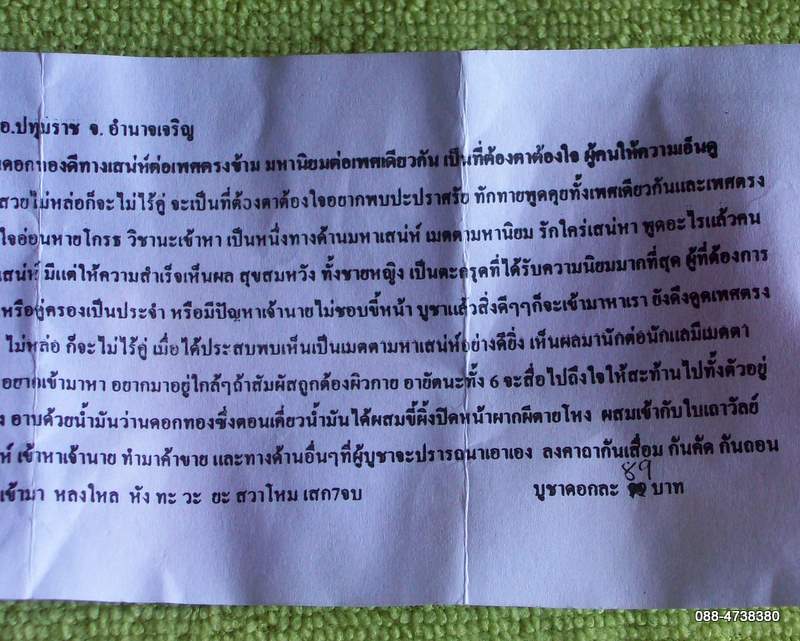 อ.ปทุมราช จ. อำนาจเจริญ
ดอกทองดีทางเสน่ห์ต่อเพศตรงข้าม มหานิยมต่อเพศเดียวกัน เป็นที่ต้องตาต้องใจ ผู้คนให้ความเอ็นดู
สวยไม่หล่อก็จะไม่ไร้คู่ จะเป็นที่ต้องตาต้องใจอยากพบปะปราศรัย ทักทายพูดคุยทั้งเพศเดียวกันและเพศตรง
ใจอ่อนหายโกรธ วิชานะเข้าหา เป็นหนึ่งทางด้านมหาเสน่ห์ เมตตามหานิยม รักใคร่เสน่หา พูดอะไรแล้วคน
เสน่ห์ มีแต่ให้ความสำเร็จเห็นผล สุขสมหวัง ทั้งชายหญิง เป็นตะกรุดที่ได้รับความนิยมมากที่สุด ผู้ที่ต้องการ
หรือคู่ครองเป็นประจำ หรือมีปัญหาเจ้านายไม่ชอบขี้หน้า บูชาแล้วสิ่งดีๆๆก็จะเข้ามาหาเรา ยังดึงดูดเพศตรง
ไม่หล่อ ก็จะไม่ไร้คู่ เมื่อได้ประสบพบเห็นเป็นเมตตามหาเสน่ห์อย่างดียิ่ง เห็นผลมานักต่อนักแลมีเมตตา
อยากเข้ามาหา อยากมาอยู่ใกล้ๆถ้าสัมผัสถูกต้องผิวกาย อายัตนะทั้ง 6 จะสื่อไปถึงใจให้สะท้านไปทั้งตัวอยู่
ง อาบด้วยน้ำมันว่านดอกทองซึ่งตอนเคี่ยวน้ำมันได้ผสมขี้ผึ้งปิดหน้าผากผีตายโหง ผสมเข้ากับใบเถาวัลย์
ห์ เข้าหาเจ้านาย ทำมาค้าขาย และทางด้านอื่นๆที่ผู้บูชาจะปรารถนาเอาเอง ลงคาถากันเสื่อม กันคัด กันถอน
เข้ามา หลงใหล หัง ทะ วะ ยะ สวาโหม เสก7จบ บูชาดอกละ 89 บาท
088-4738380